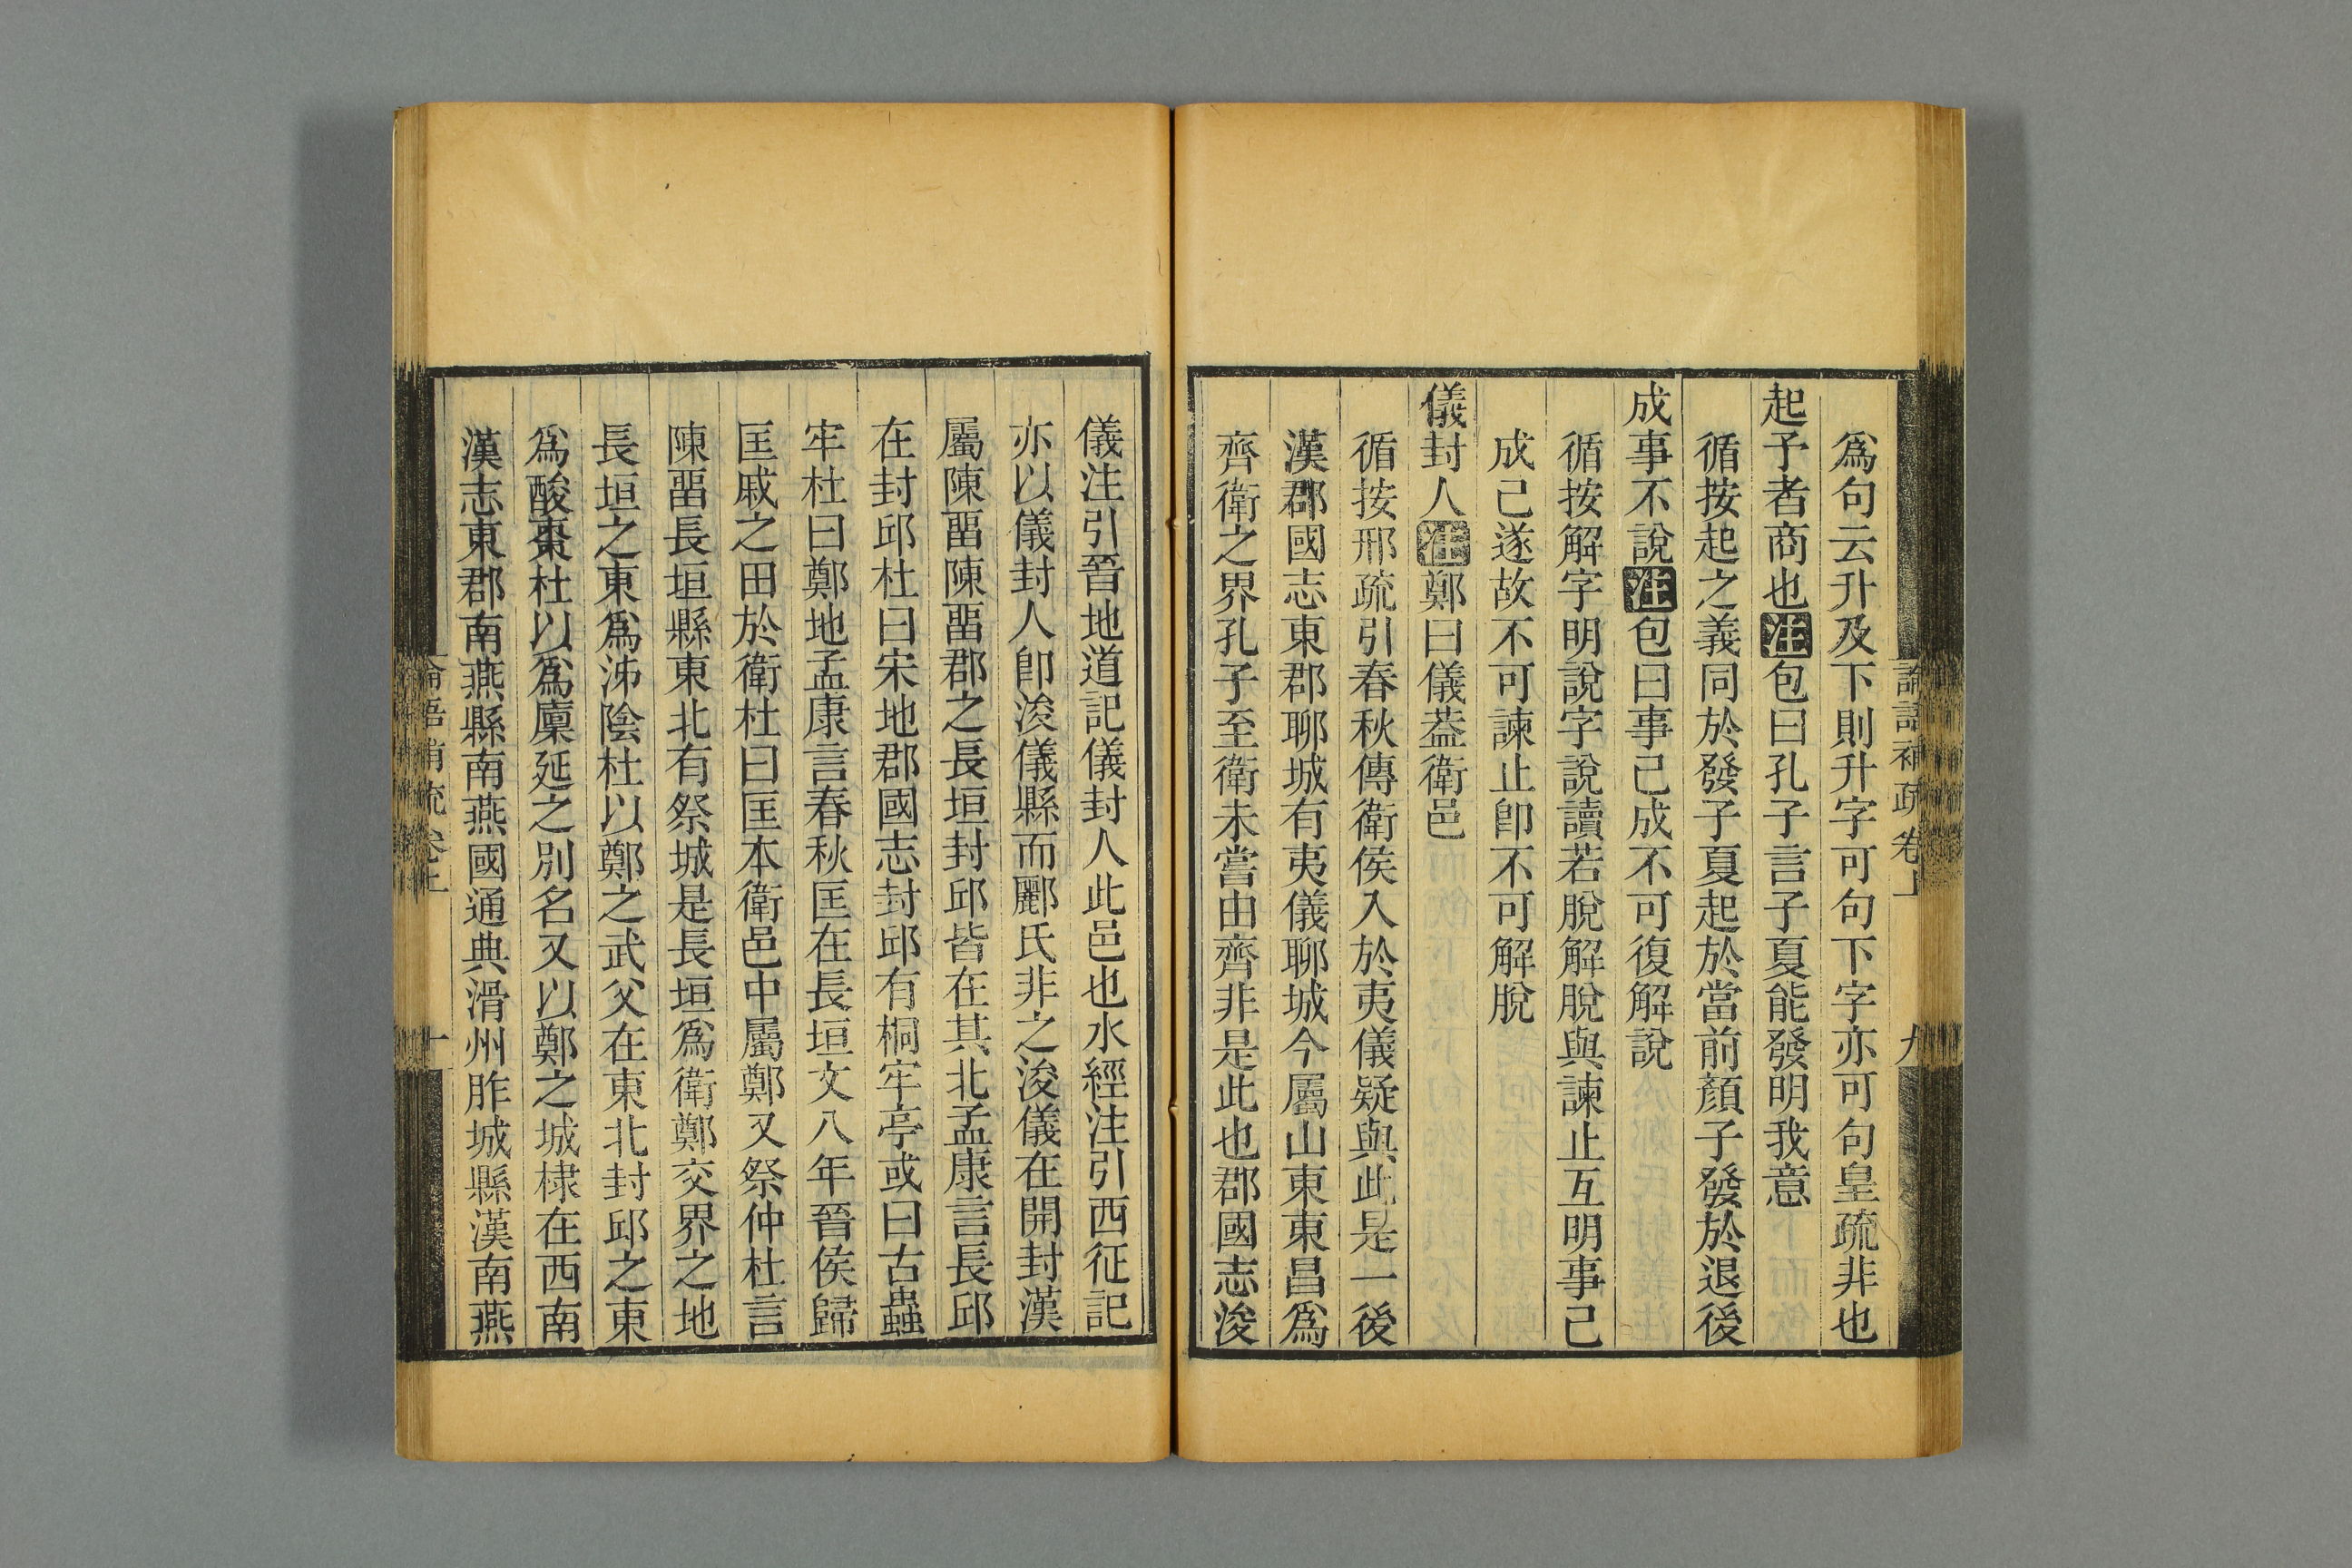 論語補疏卷上
九
爲句云升及下則升字可句下字亦可句皇疏非也
起予者商也注包曰孔子言子夏能發明我意
循按起之義同於發子夏起於當前顏子發於退後
成事不說注包曰事已成不可復解說
循按解字明說字說讀若脫解脫與諫止互明事已
成已遂故不可諫止卽不可解脫
儀封人注鄭曰儀葢衛邑
循按邢疏引春秋傳衛侯入於夷儀疑與此是一後
漢郡國志東郡聊城有夷儀聊城今屬山東東昌爲
齊衛之界孔子至衛未嘗由齊非是此也郡國志浚
儀注引晉地道記儀封人此邑也水經注引西征記
亦以儀封人卽浚儀縣而酈氏非之浚儀在開封漢
屬陳畱陳畱郡之長垣封邱皆在其北孟康言長邱
在封邱杜曰宋地郡國志封邱有桐牢亭或曰古蟲
牢杜曰鄭地孟康言春秋匡在長垣文八年晉侯歸
匡戚之田於衛杜曰匡本衛邑中屬鄭又祭仲杜言
陳畱長垣縣東北有祭城是長垣爲衛鄭交界之地
長垣之東爲泲陰杜以鄭之武父在東北封邱之東
爲酸棗杜以爲廩延之別名又以鄭之城棣在西南
漢志東郡南燕縣南燕國通典滑州胙城縣漢南燕
論語補疏卷上
十